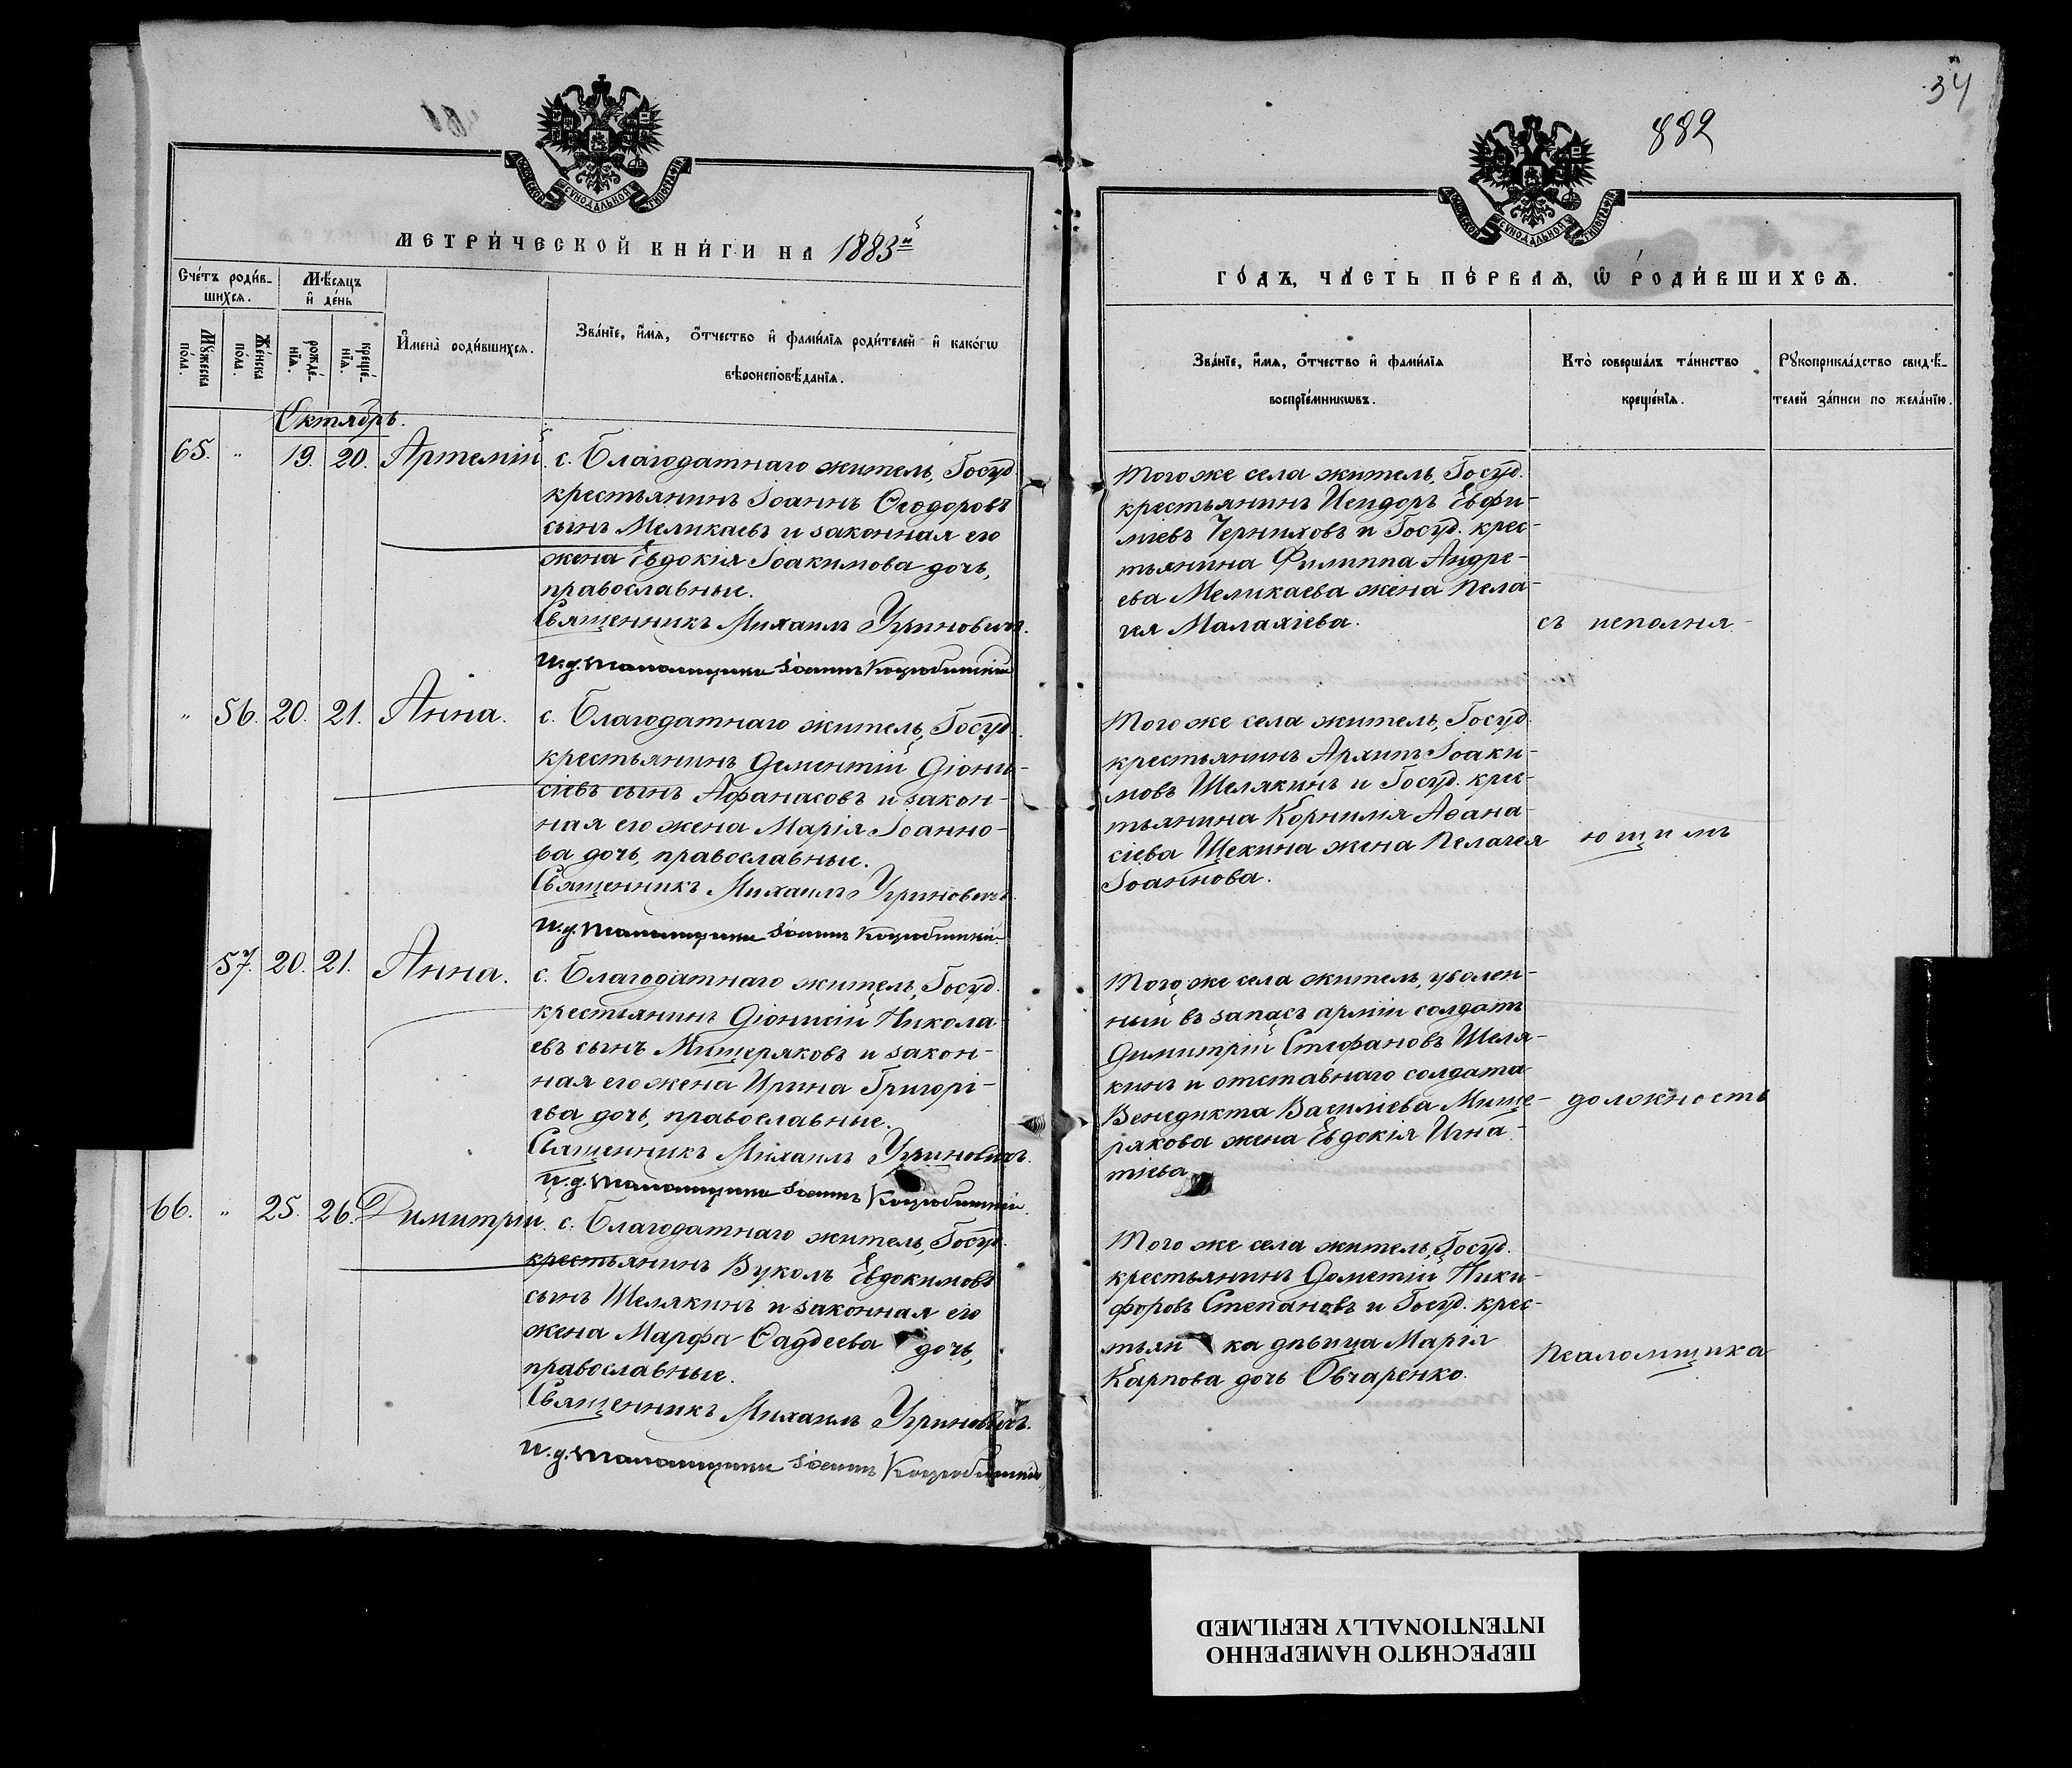 34
882
МОСКОВСКОЙ СѴНОДАЛЬНОЙ ТИПОГРАФІИ
МЕТРИ́ЧЕСКОЙ КНИ́ГИ НА 1883й
Счётъ роди́в-
шихся.
Мѣ́сяцъ
и҆ де́нь
Мꙋ́жеска по́ла.
Же́нска по́ла.
рожде́-
нїѧ.
креще́-
нїѧ.
И҆мена̀ роди́вшихсѧ.
Зва́нїе, и҆́мѧ, ѻ҆́тчество и҆ фами́лїѧ роди́телей и҆ како́гѡ
вѣроисповѣ́данїѧ.
Октябрь.
65. " 19. 20. Артемій
с. Благодатнаго житель, Госуд.
крестьянинъ Іоаннъ Ѳеодоровъ
сынъ Меликаевъ и законная его
жена Евдокія Іоакимова дочь,
православные.
Священникъ Михаилъ Угриновичъ.
И. д. псаломщика Іоаннъ
" 56. 20. 21. Анна.
с. Благодатнаго житель, Госуд.
крестьянинъ Дементій Діони-
сіевъ сынъ Афанасовъ и закон-
ная его жена Марія Іоанно-
ва дочь, православные.
Священникъ Михаилъ Угриновичъ.
И. д. псаломщика Іоаннъ
57. 20. 21. Анна.
с. Благодатнаго житель, Госуд.
крестьянинъ Діонисій Никола-
евъ сынъ Мищеряковъ и закон-
ная его жена Ирина Григорі-
ева дочь, православные.
Священникъ Михаилъ Угриновичъ.
И. д. псаломщика Іоаннъ
66. " 25. 26. Димитрій
с. Благодатнаго житель, Госуд.
крестьянинъ Вуколъ Евдокимовъ
сынъ Шелякинъ и законная его
жена Марфа Ѳаддеева дочь,
православные.
Священникъ Михаилъ Угриновичъ.
И. д. псаломщика Іоаннъ
МОСКОВСКОЙ СѴНОДАЛЬНОЙ ТИПОГРАФІИ
ГО́ДЪ, ЧА́СТЬ ПЕ́РВАѦ, Ѽ РОДИ́ВШИХСѦ.
Зва́нїе, и҆́мѧ, ѻ҆́тчество и҆ фами́лїѧ
воспрїе́мникѡвъ.
Кто̀ соверша́лъ та́инство
креще́нїѧ.
Рꙋкоприкла́дство свидѣ́-
телей за́писи по жела́нїю.
Того же села житель, Госуд.
крестьянинъ Исидоръ Евфи-
міевъ Черниховъ и Госуд. крес-
тьянина Филиппа Андре-
ева Меликаева жена Пела-
гія Малахіева.
съ исполня-
Того же села житель, Госуд.
крестьянинъ Архипъ Іоаки-
мовъ Шелякинъ и Госуд. крес-
тьянина Корнилія Аѳана-
сіева Щекина жена Пелагея
Іоаннова.
ющимъ
Того же села житель, уволен-
ный въ запасъ арміи солдатъ
Димитрій Стефановъ Шеля-
кинъ и отставнаго солдата
Венедикта Василіева Мище-
рякова жена Евдокія Игна-
тіева.
должность
Того же села житель, Госуд.
крестьянинъ Дометій Ники-
форовъ Степановъ и Госуд. крес-
тьян ка дѣвица Марія
Карпова дочь Овчаренко.
псаломщика
ПЕРЕСНЯТО НАМЕРЕННО
INTENTIONALLY REFILMED